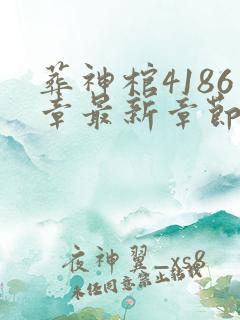 葬神棺4186
章最新章节
夜神翼_xs8
未任同意禁止转载